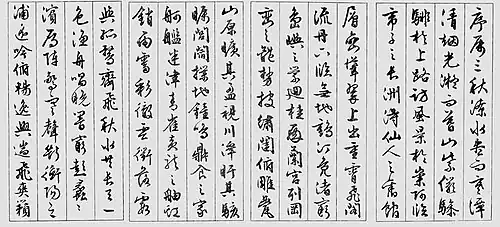 序屬三秋潦水盡而寒潭
清煙光凝而暮山紫儼驂
騑於上路訪風景於崇阿臨
帝子之長洲得仙人之舊館
層臺聳翠上出重霄飛閣
流丹下臨無地鶴汀鳧渚窮
島嶼之縈迴桂殿蘭宮列岡
巒之體勢披繡闥俯雕甍
山原曠其盈視川澤盱其駭
矚閭閻撲地鐘鳴鼎食之家
舸艦迷津青雀黃龍之舳虹
銷雨霽彩徹雲衢落霞
與孤鶩齊飛秋水共長天一
色漁舟唱晚響窮彭蠡之
濱雁陣驚寒聲斷衡陽之
浦遙吟俯暢逸興遄飛爽籟